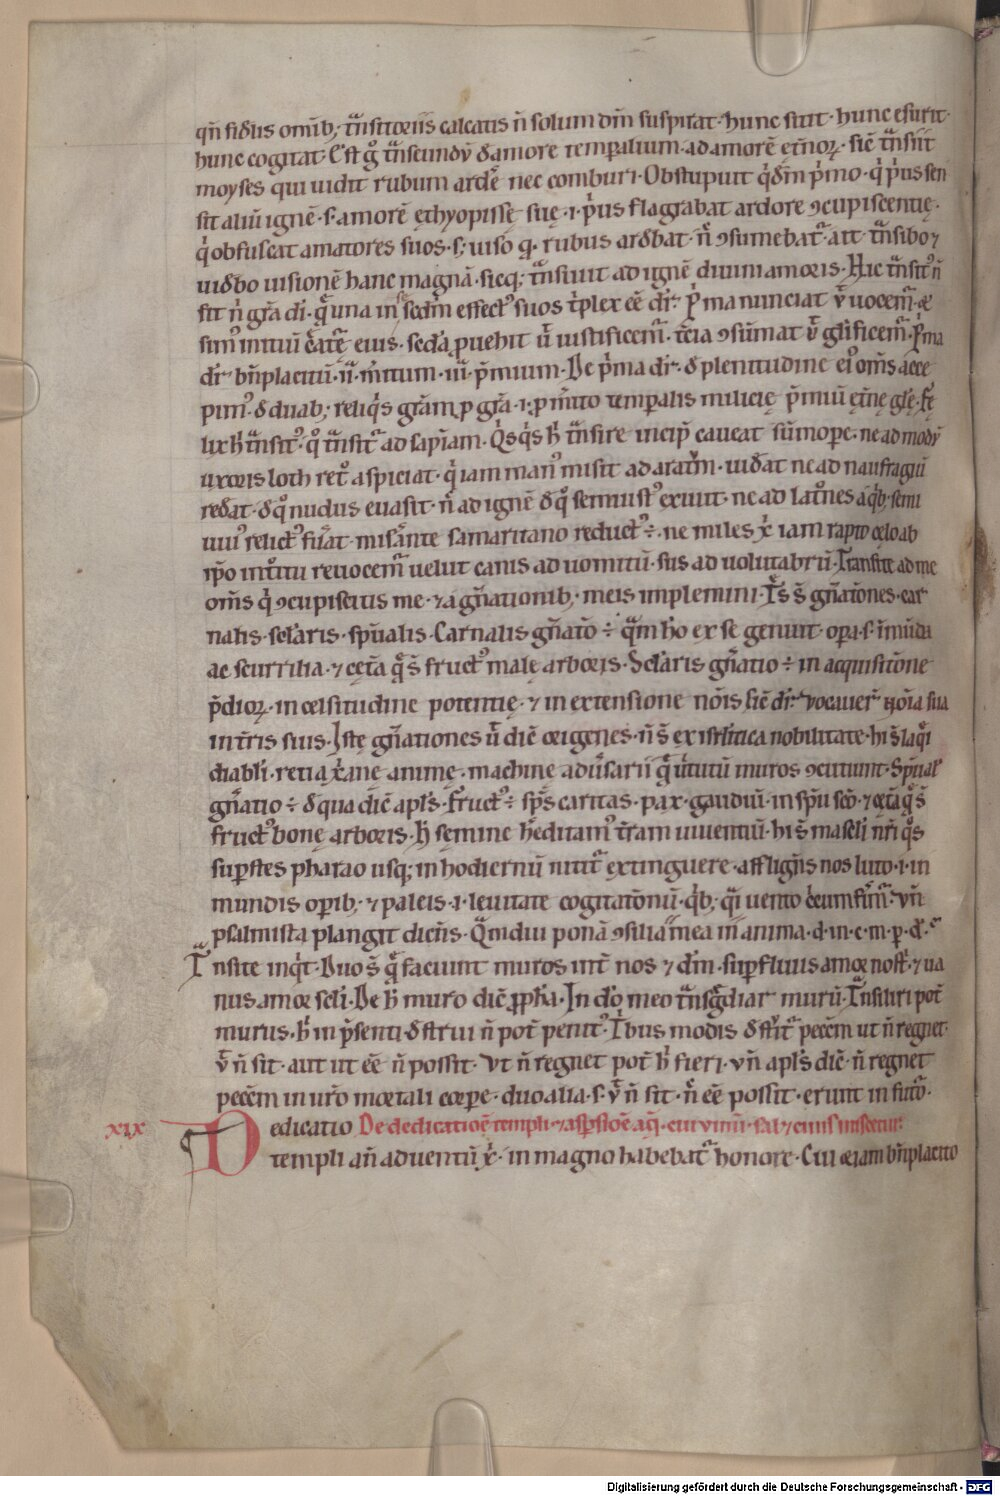 qn̄ fidelis omīb; tͣnsitoriis calcatis n̄ solum dm̄ suspirat· hunc sitit· hunc esurit·
hunc cogitat· Est gͦ tͣnseundū de amore temꝑalium· ad amorē et̄noꝝ· sic̄ tͣnsiit
moyses qui uidit rubum ardēe nec comburi· Obstupuit qͥdēm pͥmo· qͥ pͥus sen
sit aliū ignē· s· amorē ęthyopissę suę· i· pͥus flagrabat ardore ɔcupiscentię·
qͥ obfuscat amatores suos· s; uiso qͥ rubus ardebat· n̄ ɔsumebatͬ· ait tͣnsibo ⁊
uidebo uisionē hanc magnā· sicq; tͣnsiuit ad ignē diuini amoris· Hic tͣnsitꝰ n̄
fit n̄ gr̄a di· qͣ una in se sed̄m effectꝰ suos tͥplex eē dr̄· pͥma nunciat ut̄ uocemͬ· ⁊
simͥ initiū· ętatę eius· secd̄a ꝓuehit ut̄ iustificemͬ· t̄cia ɔsūmat ut̄ glīficemͬ· Pͥma
dr̄ bn̄placitū· ii· m̄itum· iii· p̄mium· De pͥma dr̄· de plenitudine eiꝰ om̄s acce
pimꝰ· de duab; reliqͥs gr̄am ꝓ gr̄a· i· ꝓ m̄ito temꝑalis milicię p̄miū et̄nę gl̄ę·
lux h̄ tͣnsitꝰ· qͦ tͣnsitͬ ad sapīam· Qͥsqͥs h̄ tͣnsire incip̄ caueat sūmope· ne ad modū
uxoris loth ret̄ aspiciat· qͥ iam manꝰ misit ad aratͬm· uideat ne ad naufragiū
redeat· de qͦ nudus euasit· n̄ ad ignē de qͦ semiustꝰ exiuit· ne ad latͦnes a qͥb; semi
uiuꝰ relictꝰ fuāt· misāante samaritano reductꝰ ÷· ne miles xͥ iam rapto cęlo ab
ip̄o intͦitu reuocemͬ uelut canis ad uomitū· sus ad uolutabrū· Transite ad me
om̄s qͥ ɔcupiscitis me· ⁊ a gn̄ationib; meis implemini· Tͬs s̄ gn̄atōnes· car
nalis· sclāris· sp̄ualis· Carnalis gn̄atō ÷ qͣm hō ex se genuit· opa· s· īmūda
ac scurrilia· ⁊ cęt̄a qͣ s̄ fructꝰ malę arboris· Sclāris gn̄atio ÷ in acquisitōne
p̄dioꝝ· in celsitudine potentię· ⁊ in extensione nōis sic̄ dr̄· Vocauer̄ nōia sua
in t̄ris suis· Istę gn̄ationes ut̄ dic̄ origenes· n̄ s̄ ex isrl̄itica nobilitate· hi s̄ laqͥ
diabli· retia xͥanę animę· machinę aduersarii qͣ uͥtutū muros ɔcutiunt· Sp̄ualͥ
gn̄atio ÷ de qua dic̄ apl̄s· Fructꝰ ÷ sp̄s caritas· pax· gaudiū· in sp̄u sc̄o· ⁊ cęt̄a qͣ s̄
fructꝰ bonę arboris· h̄ semine h̄editamꝰ t̄ram uiuentiū· hi s̄ mascli nr̄i qͦs
suꝑstes pharao usq; in hodiernū nititͬ extinguere· affligēns nos luto· i· in
mundis opib; ⁊ paleis· i· leuitate cogitatōnū· qͥb; qͣi uento circumferimͬ· Vn̄
psalmista plangit dicēns· Qͣmdiu ponā ɔsilia mea in anima· d· in· c· m· p· d·
Tͣnsite inqͥt· Duo s̄ qͣ faciunt muros int̄ nos ⁊ dm̄· suꝑfluus amor nost̄· ⁊ ua
nus amor scl̄i· De h̄ muro dic̄ ꝓph̄a· In dō meo tͣnsgͬdiar murū· Tͣnsiliri pot̄
murus· h̄ in p̄senti· destrui n̄ pot̄ penitꝰ· Tͥbus modis destͥtͬ peccm̄ ut n̄ regnet·
ut̄ n̄ sit· aut ut eē n̄ possit· Vt n̄ regnet pot̄ h̄ fieri· vn̄ apl̄s dic̄· n̄ regnet
peccm̄ in uro mortali corpore· duo alia· s· ut̄ n̄ sit· n̄ eē possit· erunt in futͦ·
xix Dedicatio De dedicatiōe templi· ⁊ aspsiōe aq̄· cui uinū· sal ⁊ cinis miscetur·
templi an̄ aduentū xͥ· in magno habebatͬ honore· Cui etiam bn̄placito
Digitalisierung gefördert durch die Deutsche Forschungsgemeinschaft - DFG